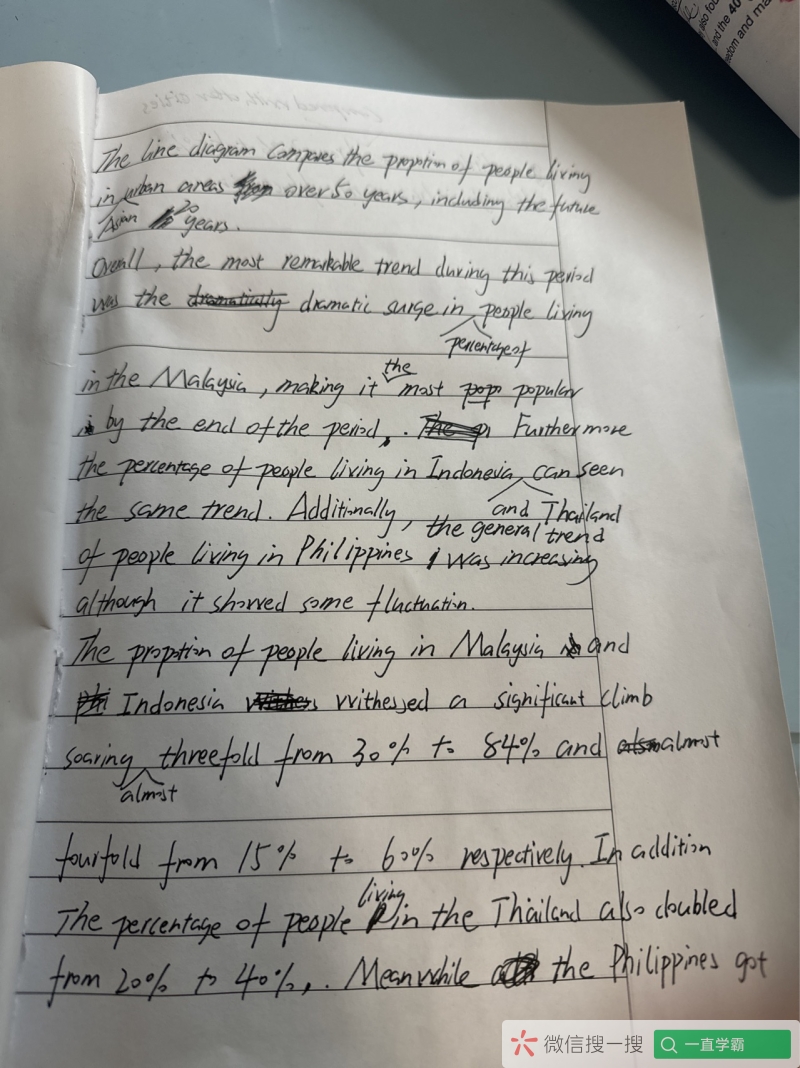 also fou
and the 40
edom and ma
The line diagram compares the proprtion of people living
in urban areas over 50 years, including the future
Asian 20 years.
Overall, the most remarkable trend during this period
was the dramatically dramatic surge in people living
percentage of
in the Malaysia, making it the most pop popular
by the end of the period. Furthermore
the percentage of people living in Indonesia can seen
and Thailand
the same trend. Additionally, the general trend
of people living in Philippines was increasing
although it showed some fluctuation.
The proprtion of people living in Malaysia and
Indonesia withessed a significant climb
soaring threefold from 30% to 84% and almost
almost
fourfold from 15% to 60% respectively. In addition
The percentage of people living in the Thailand also doubled
from 20% to 40%. Meanwhile the Philippines got
微信搜一搜
一直学霸